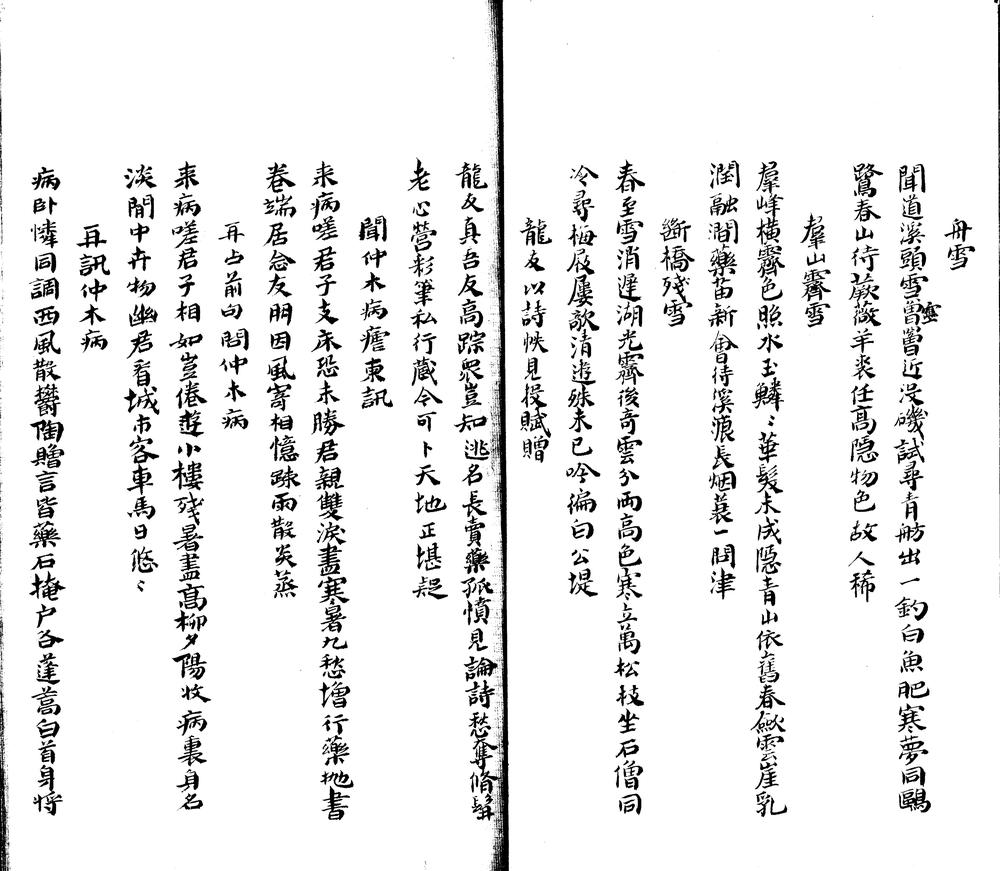 舟雪
聞道溪頭雪嘗嘗近沒磯試尋青舫出一釣白魚肥寒夢同鷗
鷺春山待蕨薇羊裘任高隠物色故人稀
羣山霽雪
羣峰橫霽色照水玉鱗〻華髮未成隠青山依舊春歛雲崖乳
潤融澗藥苗新會待溪痕長烟蓑一問津
斷橋殘雪
春至雪消遲湖光霽後奇雲分兩高色寒立萬松枝坐石僧同
冷尋梅屐屢欹清遊殊未已吟徧白公堤
龍友以詩帙見投賦贈
龍友真吾友高踪衆豈知逃名長賣藥孤憤見論詩愁奪脩髯
老心營彩筆私行藏今可卜天地正堪疑
聞仲木病瘧柬訊
来病嗟君子支床恐未勝君親雙淚盡寒暑九愁增行藥抛書
卷端居念友朋因風寄相憶踈雨散炎蒸
再占前向問仲木病
来病嗟君子相如豈倦遊小樓殘暑盡髙柳夕陽收病裏身名
淡閒中卉物幽君看城市客車馬日悠〻
再訊仲木病
病卧憐同調西風散欝陶贈言皆藥石掩户各蓬蒿白首身将